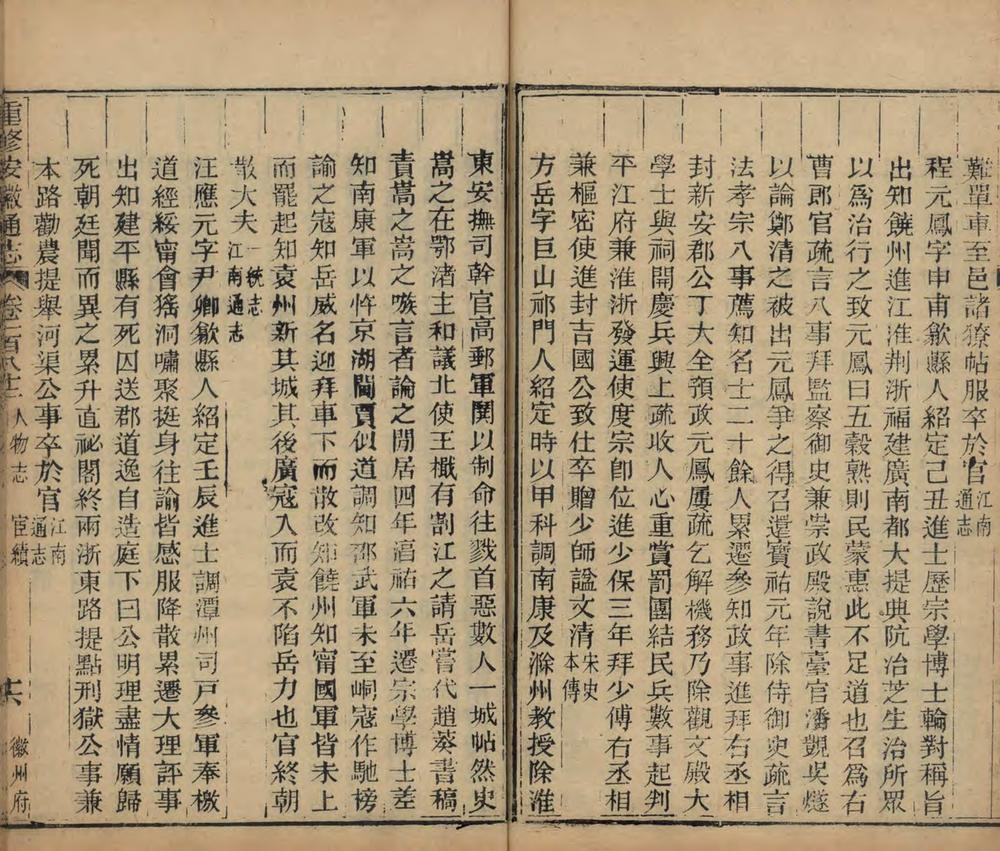 難單車至邑諸獠帖服卒於官江南通志
程元鳳字申甫歙縣人紹定己丑進士歷宗學博士輪對稱旨
出知饒州進江淮荆浙福建廣南都大提典阬冶芝生治所眾
以爲治行之致元鳳曰五穀熟則民蒙惠此不足道也召爲右
曹郎官疏言八事拜監察御史兼崇政殿說書臺官潘觀吳燧
以論鄭清之被出元鳳爭之得召還寶祐元年除侍御史疏言
法孝宗八事薦知名士二十餘人累遷參知政事進拜右丞相
封新安郡公丁大全預政元鳳屢疏乞解機務乃除觀文殿大
學士與祠開慶兵興上疏收人心重賞罰團結民兵數事起判
平江府兼淮浙發運使度宗卽位進少保三年拜少傅右丞相
兼樞密使進封吉國公致仕卒贈少師諡文清宋史本傳
方岳字巨山祁門人紹定時以甲科調南康及滁州教授除淮
東安撫司幹官高郵軍鬨以制命往戮首惡數人一城帖然史
嵩之在鄂渚主和議北使王檝有割江之請岳嘗代趙葵書稿
責嵩之嵩之嗾言者論之閒居四年淳祐六年遷宗學博士差
知南康軍以忤京湖閫賈似道調知邵武軍未至峒寇作馳榜
諭之寇知岳威名迎拜車下而散改知饒州知甯國軍皆未上
而罷起知袁州新其城其後廣寇入而袁不陷岳力也官終朝
散大夫一統志江南通志
汪應元字尹卿歙縣人紹定壬辰進士調潭州司戶參軍奉檄
道經綏甯會猺洞嘯聚挺身往諭皆感服降散累遷大理評事
出知建平縣有死囚送郡道逸自造庭下曰公明理盡情願歸
死朝廷聞而異之累升直祕閣終兩浙東路提點刑獄公事兼
本路勸農提舉河渠公事卒於官江南通志
重修安徽通志 卷一百八十 人物志 宦績 徽州府